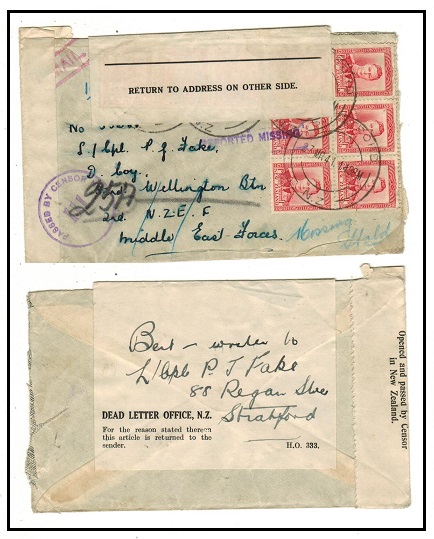 RETURN TO ADDRESS ON OTHER SIDE.
No
REPORTED MISSING
L/Cpl. P. J. Fake,
D. Coy.
Wellington Btn
2nd. N.Z.E.F
Middle East Forces.
Missing
Hold
PASSED BY CENSOR
N.Z.
Best - wonder to
L/Cpl P J Fake
88 Regan Stre
Stratford
DEAD LETTER OFFICE, N.Z.
For the reason stated thereon
this article is returned to the
sender.
H.O. 333.
Opened and passed by Censor
in New Zealand.